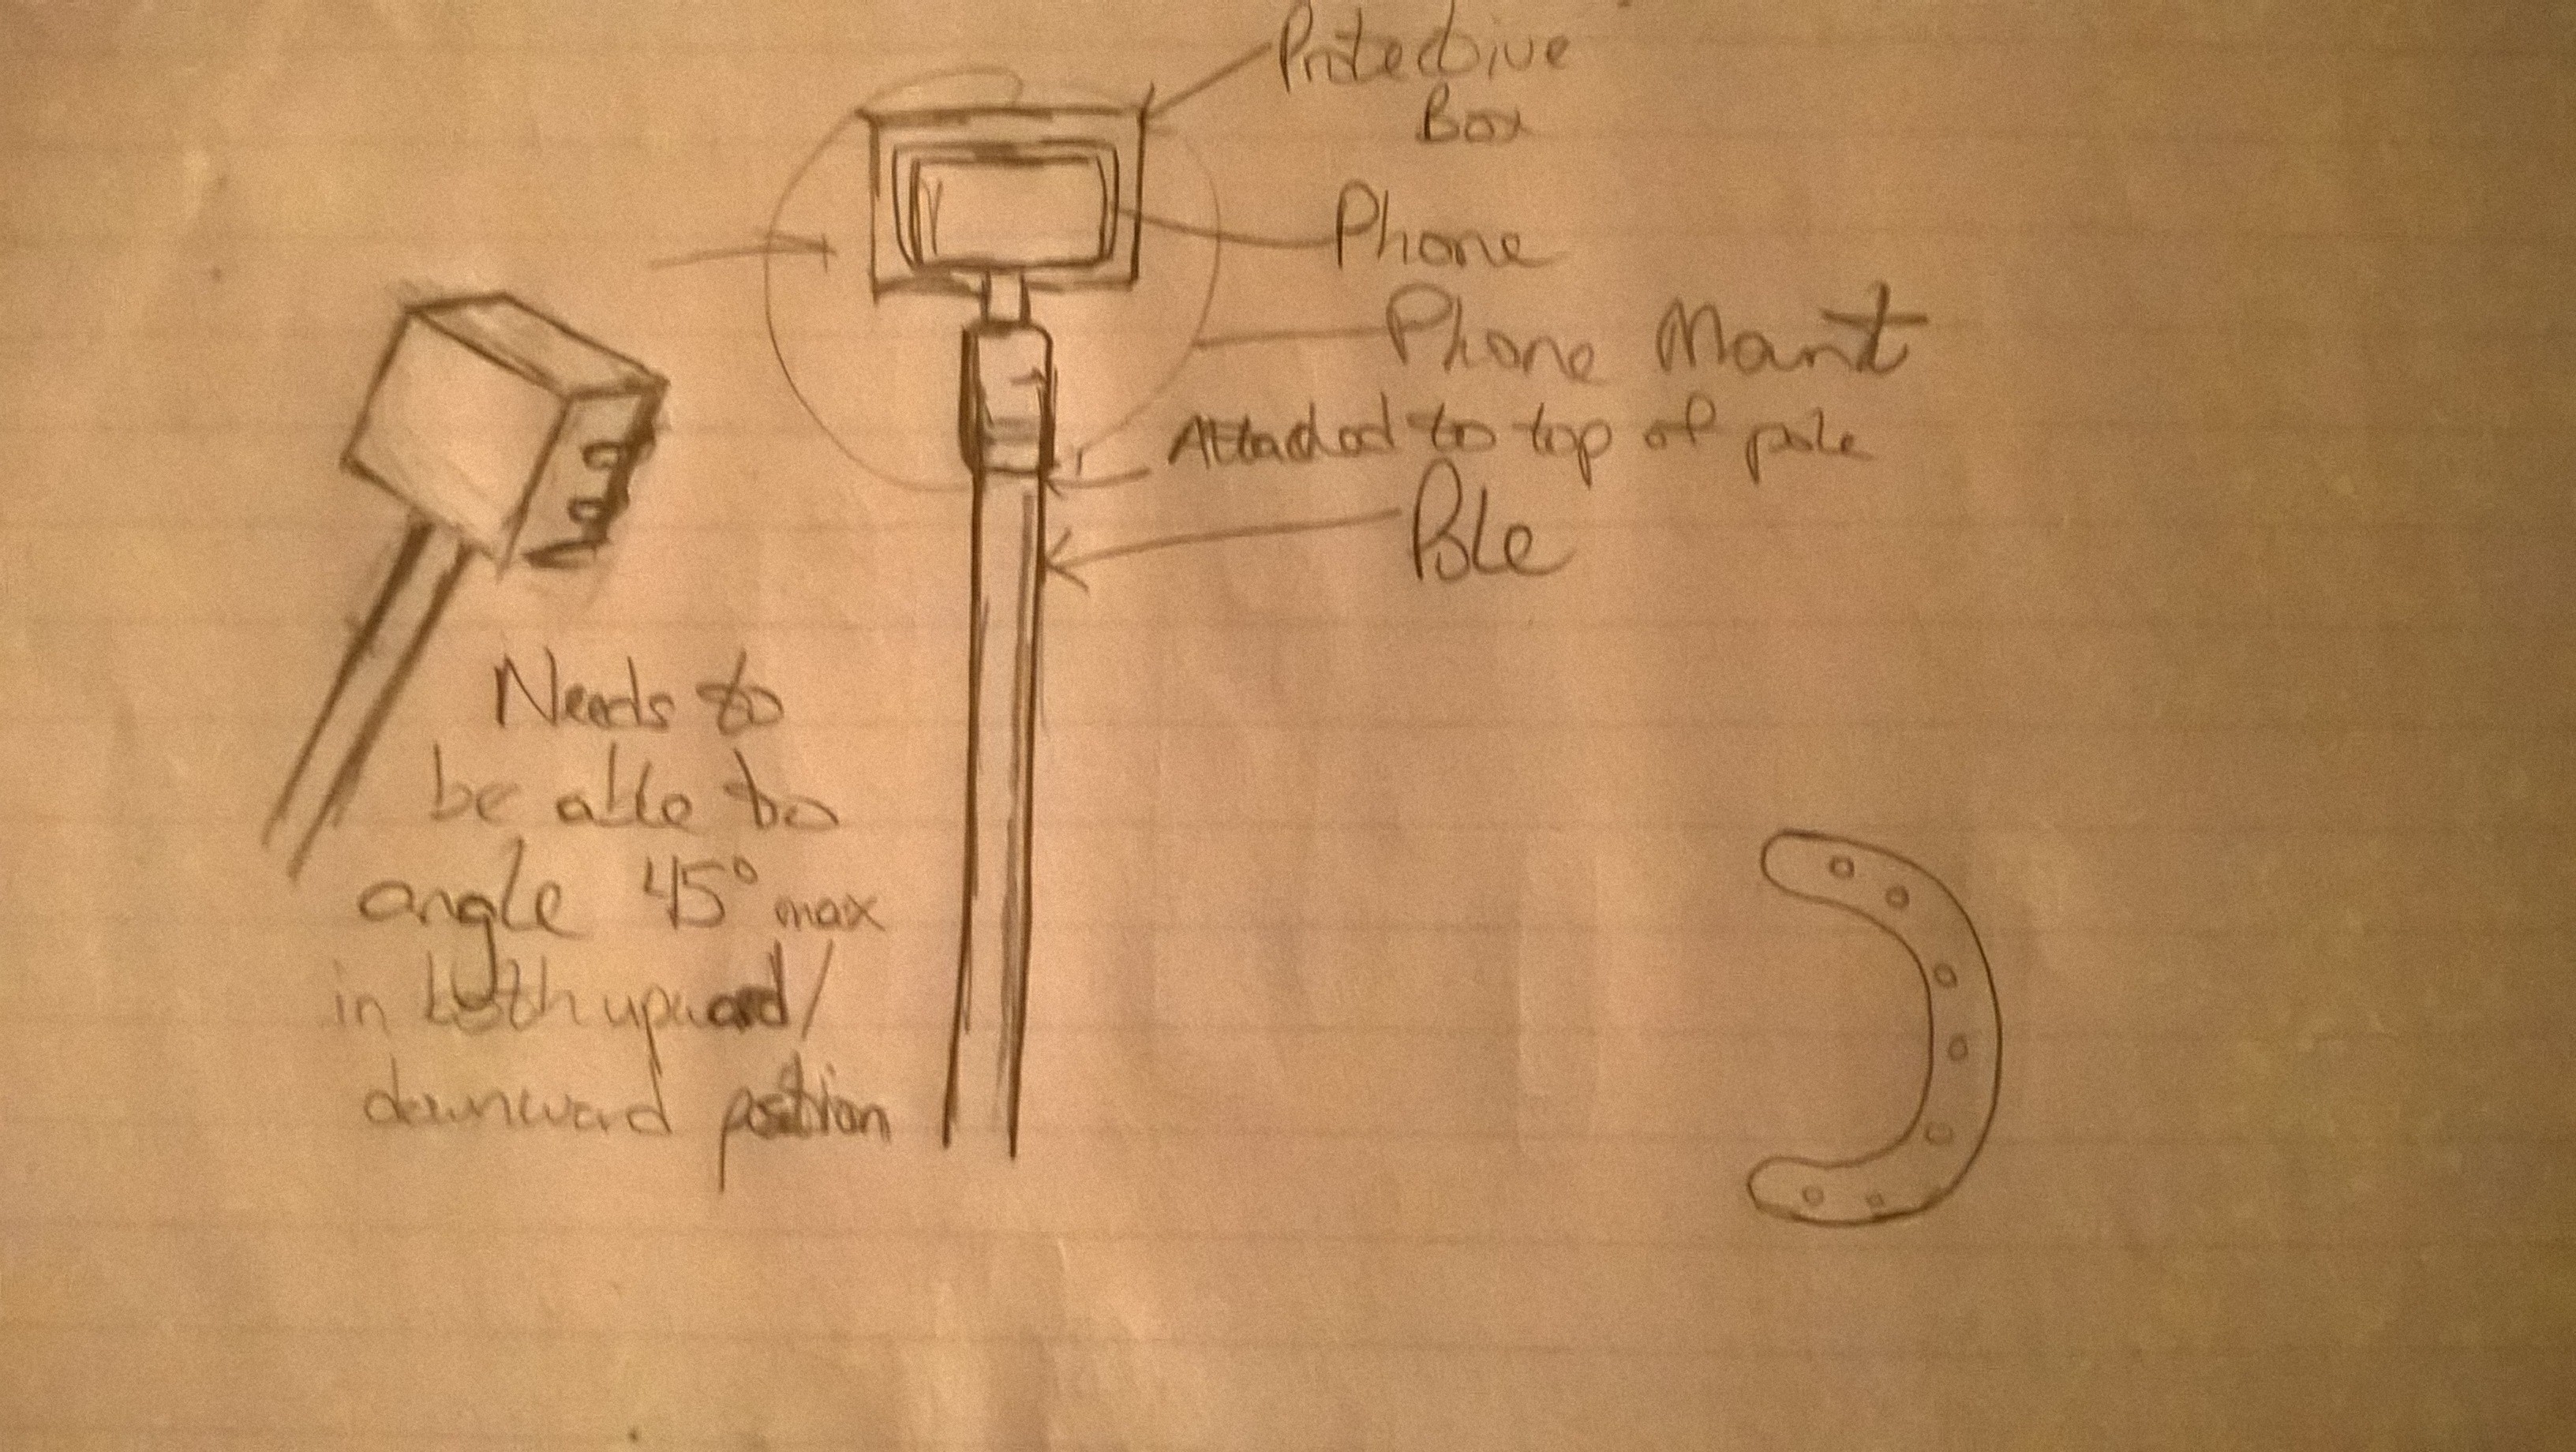 Protective
Box
Phone
Phone Mount
Attached to top of pole
Pole
Needs to
be able to
angle 45° max
in both upward/
downward position